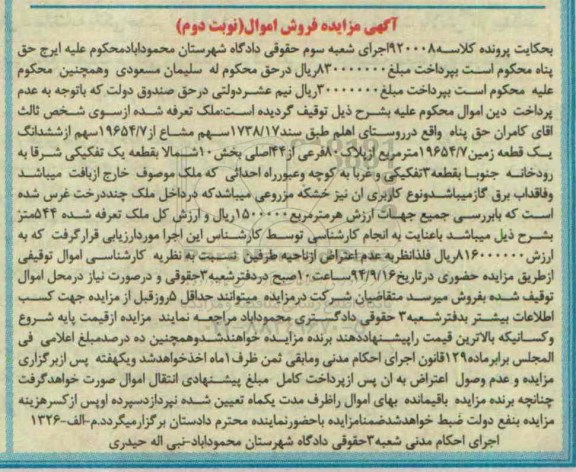 آگهی مزایده فروش اموال(نوبت دوم)
بحکایت پرونده کلاسه۹۲۰۰۰۸اجرای شعبه سوم حقوقی دادگاه شهرستان محمودابادمحکوم علیه ایرج حق
پناه محکوم است بپرداخت مبلغ۸۳۰۰۰۰۰۰۰ریال درحق محکوم له سلیمان مسعودی وهمچنین محکوم
علیه محکوم است بپرداخت مبلغ۳۰۰۰۰۰۰۰ریال نیم عشردولتی درحق صندوق دولت که باتوجه به عدم
پرداخت دین اموال محکوم علیه بشرح ذیل توقیف گردیده است:ملک تعرفه شده ازسوی شخص ثالث
اقای کامران حق پناه واقع درروستای اهلم طبق سند۱۷۳۸/۱۷سهم مشاع از۱۹۶۵۴/۷سهم ازششدانگ
یک قطعه زمین۱۹۶۵۴/۷مترمربع ازپلاک۸۰فرعی از۴۴اصلی بخش۱۰شمالا بقطعه یک تفکیکی شرقا به
رودخانه جنوبا بقطعه۳تفکیکی و غربا به کوچه وعبورراه احداثی که ملک موصوف خارج ازبافت میباشد
وفاقداب برق گازمیباشدونوع کاربری ان نیز خشکه مزروعی میباشدکه درداخل ملک چنددرخت غرس شده
است که بابررسی جمیع جهات ارزش هرمترمربع۱۵۰۰۰۰۰ریال و ارزش کل ملک تعرفه شده ۵۴۴متر
بشرح ذیل میباشد باعنایت به انجام کارشناسی توسط کارشناس این اجرا موردارزیابی قرارگرفت که به
ارزش۸۱۶۰۰۰۰۰۰ریال فلذانظربه عدم اعتراض ازناحیه طرفین نسبت به نظریه کارشناسی اموال توقیفی
ازطریق مزایده حضوری درتاریخ۹۴/۹/۱۶ساعت۱۰صبح دردفترشعبه۳حقوقی و درصورت نیاز درمحل اموال
توقیف شده بفروش میرسد متقاضیان شرکت درمزایده میتوانند حداقل ۵روزقبل از مزایده جهت کسب
اطلاعات بیشتر بدفترشعبه۳ حقوقی دادگستری محموداباد مراجعه نمایند مزایده ازقیمت پایه شروع
وکسانیکه بالاترین قیمت راپیشنهاددهند برنده مزایده خواهندشدوهمچنین ده درصدمبلغ اعلامی فی
المجلس برابرماده۱۲۹قانون اجرای احکام مدنی ومابقی ثمن ظرف۱ماه اخذخواهدشد ویکهفته پس ازبرگزاری
مزایده و عدم وصول اعتراض به ان پس ازپرداخت کامل مبلغ پیشنهادی انتقال اموال صورت خواهدگرفت
چنانچه برنده مزایده باقیمانده بهای اموال راظرف مدت یکماه تعیین شده نپردازدسپرده اوپس ازکسرهزینه
مزایده بنفع دولت ضبط خواهدشدضمنامزایده باحضورنماینده محترم دادستان برگزارمیگردد.م-الف-۱۳۲۶
اجرای احکام مدنی شعبه۳حقوقی دادگاه شهرستان محموداباد-نبی اله حیدری